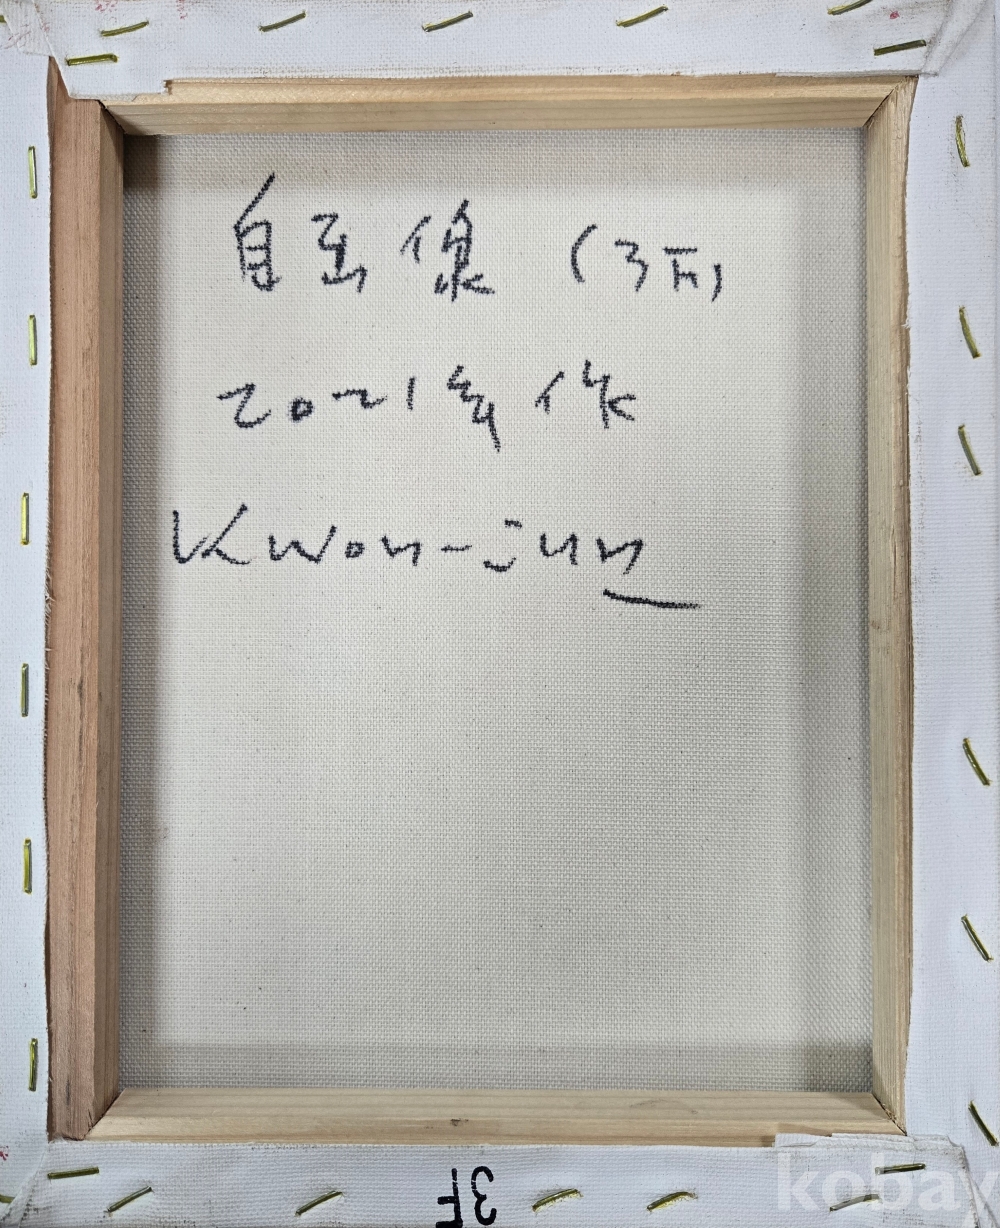 自画像 (3F)
2021年作
Kwon-jun
3F
kobay